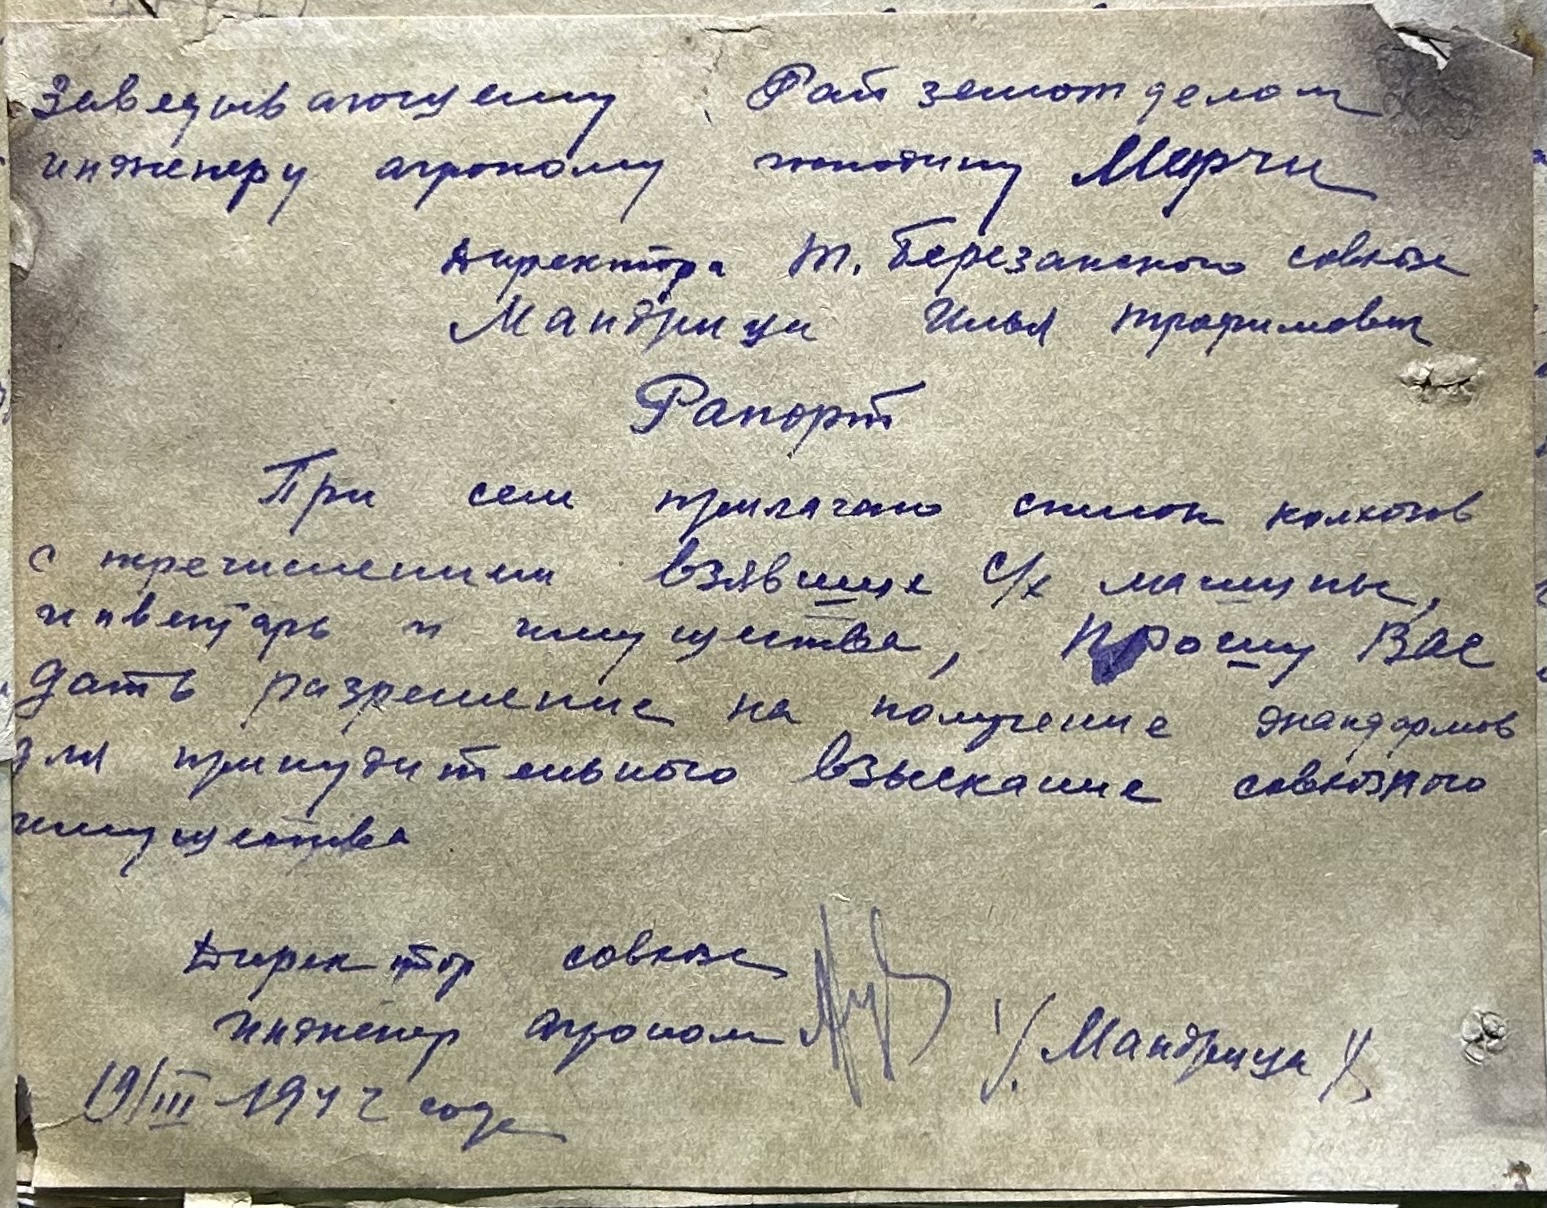 Заведывающему Райземотделом
инженеру агроному господину
Директора т. Березанского совхоза
Мандрици Илья Трофимович
Рапорт
При сем прилагаю список колхозов
с перечислением взявшие с/х машины,
инвентарь и имущества, Прошу Вас
дать разрешение на получение жандармов
для принудительного взыскание совхозного
имущества
Директор совхоза
инженер агроном /Мандрица/
19/III-1942 года